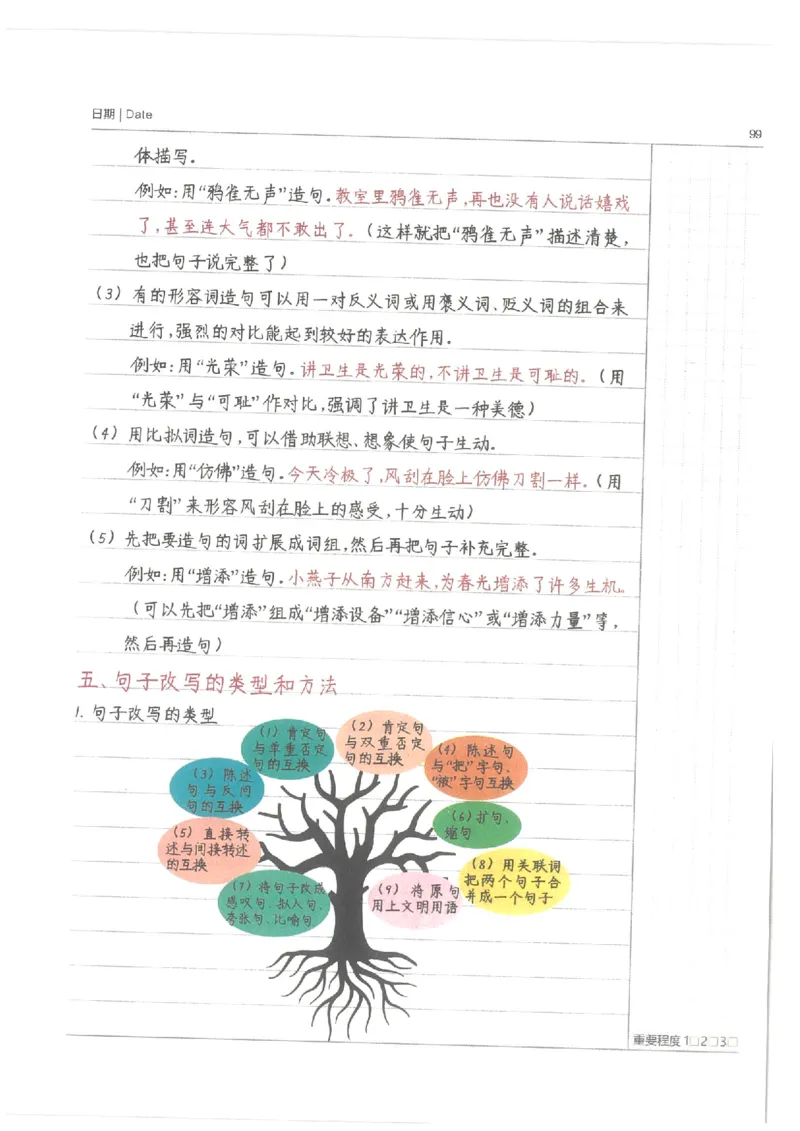 日期 | Date
99
体描写.
例如:用“鸦雀无声”造句.教室里鸦雀无声,再也没有人说话嬉戏
了,甚至连大气都不敢出了。(这样就把“鸦雀无声”描述清楚,
也把句子说完整了)
(3) 有的形容词造句可以用一对反义词或用褒义词、贬义词的组合来
进行,强烈的对比能起到较好的表达作用.
例如:用“光荣”造句.讲卫生是光荣的,不讲卫生是可耻的.(用
“光荣”与“可耻”作对比,强调了讲卫生是一种美德)
(4) 用比拟词造句,可以借助联想、想象使句子生动.
例如:用“仿佛”造句.今天冷极了,风刮在脸上仿佛刀割一样.(用
“刀割”来形容风刮在脸上的感受,十分生动)
(5) 先把要造句的词扩展成词组,然后再把句子补充完整.
例如:用“增添”造句.小燕子从南方赶来,为春光增添了许多生机。
(可以先把“增添”组成“增添设备”“增添信心”或“增添力量”等,
然后再造句)
五、句子改写的类型和方法
1. 句子改写的类型
(1) 肯定句
与单重否定
句的互换
(2) 肯定句
与双重否定
句的互换
(3) 陈述
句与反问
句的互换
(4) 陈述句
与“把”字句、
“被”字句互换
(5) 直接转
述与间接转述
的互换
(6) 扩句、
缩句
(7) 将句子改成
感叹句、拟人句、
夸张句、比喻句
(8) 用关联词
把两个句子合
并成一个句子
(9) 将原句
用上文明用语
重要程度 1□2□3□